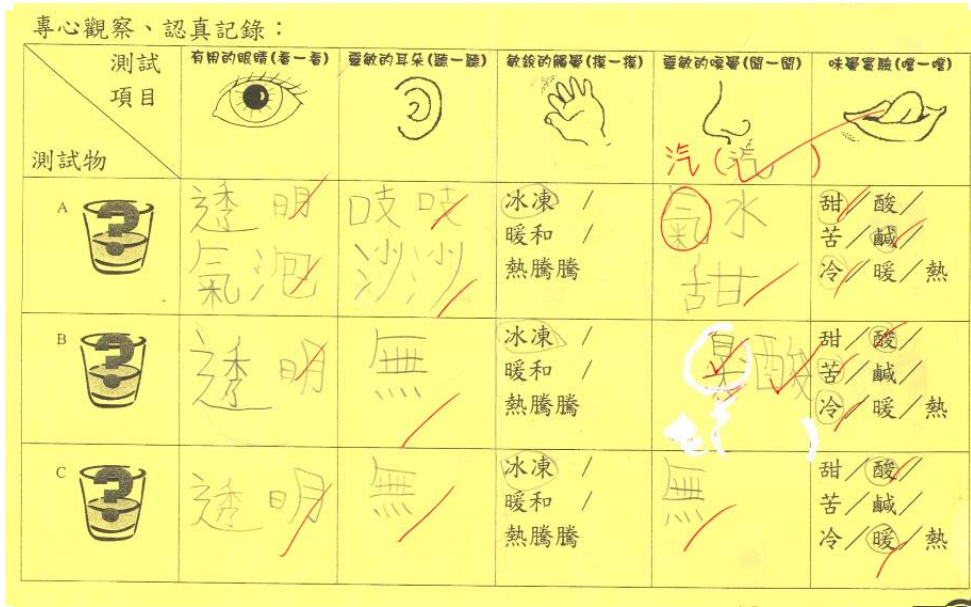 專心觀察、認真記錄：
測試項目
測試物
有用的眼睛(看一看)
靈敏的耳朵(聽一聽)
敏銳的觸覺(摸一摸)
靈敏的嗅覺(聞一聞)
味覺實驗(嚐一嚐)
汽(汽)
A
透明
氣泡
吱吱
沙沙
冰凍 /
暖和 /
熱騰騰
氣水
甜
甜/酸/
苦/鹹/
冷/暖/熱
B
透明
無
冰凍 /
暖和 /
熱騰騰
酸
甜/酸/
苦/鹹/
冷/暖/熱
C
透明
無
冰凍 /
暖和 /
熱騰騰
無
甜/酸/
苦/鹹/
冷/暖/熱